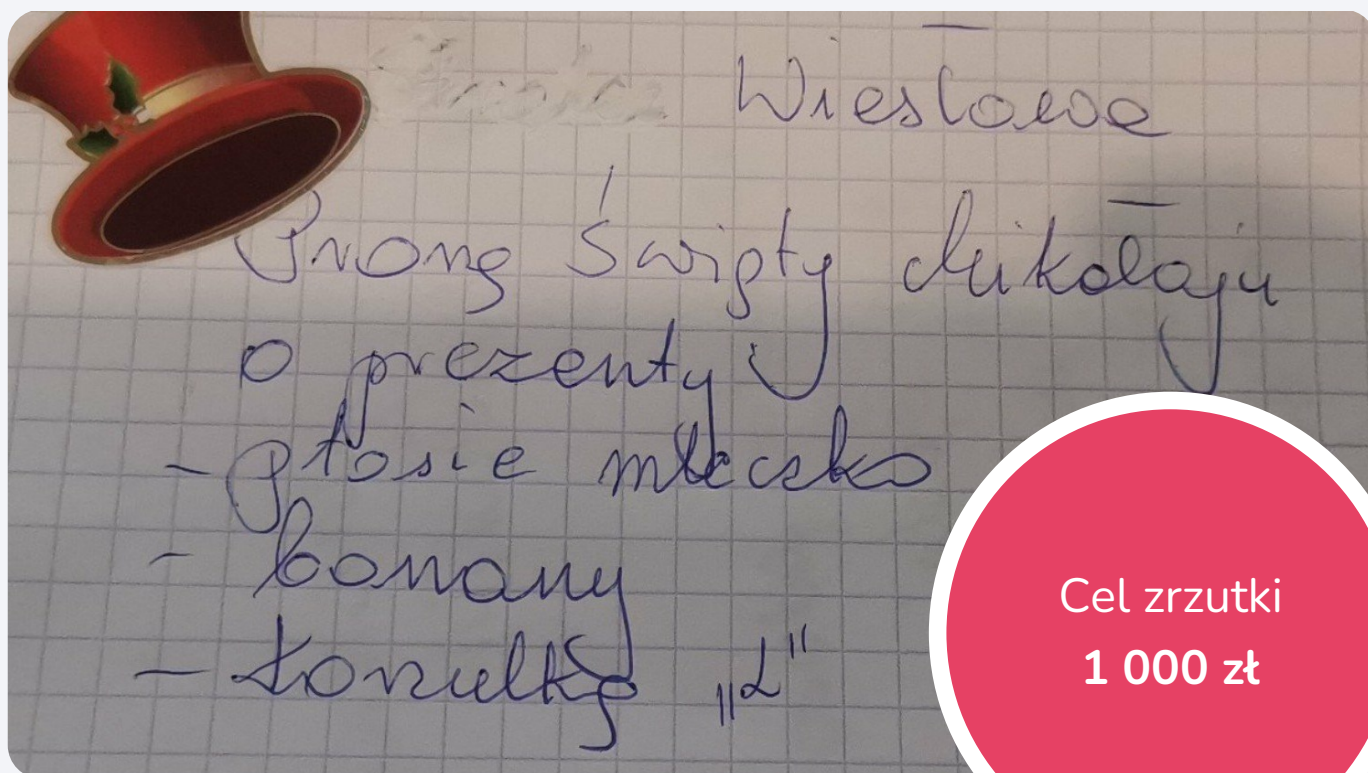 Wiesława
Proszę Święty Mikołaju
o prezenty
- ptasie mleczko
- banany
- koszulkę „L"
Cel zrzutki
1 000 zł